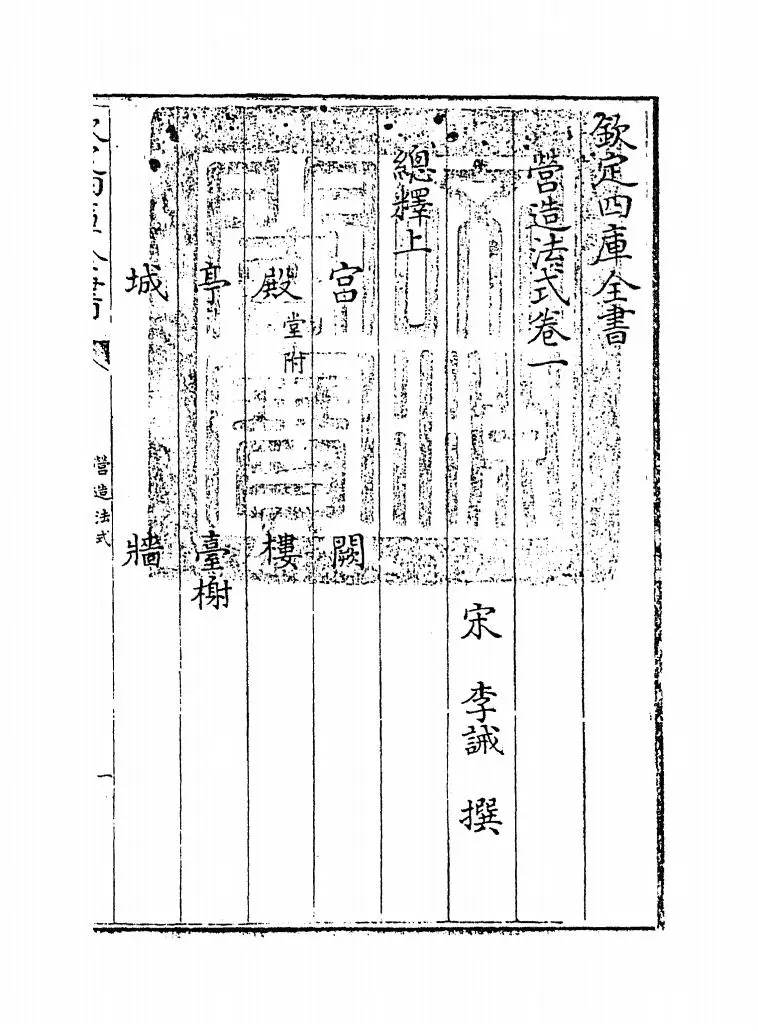 欽定四庫全書
營造法式卷一
宋 李誡 撰
總釋上
宫 闕
殿 堂附 樓
亭 臺榭
城 牆
營造法式 一